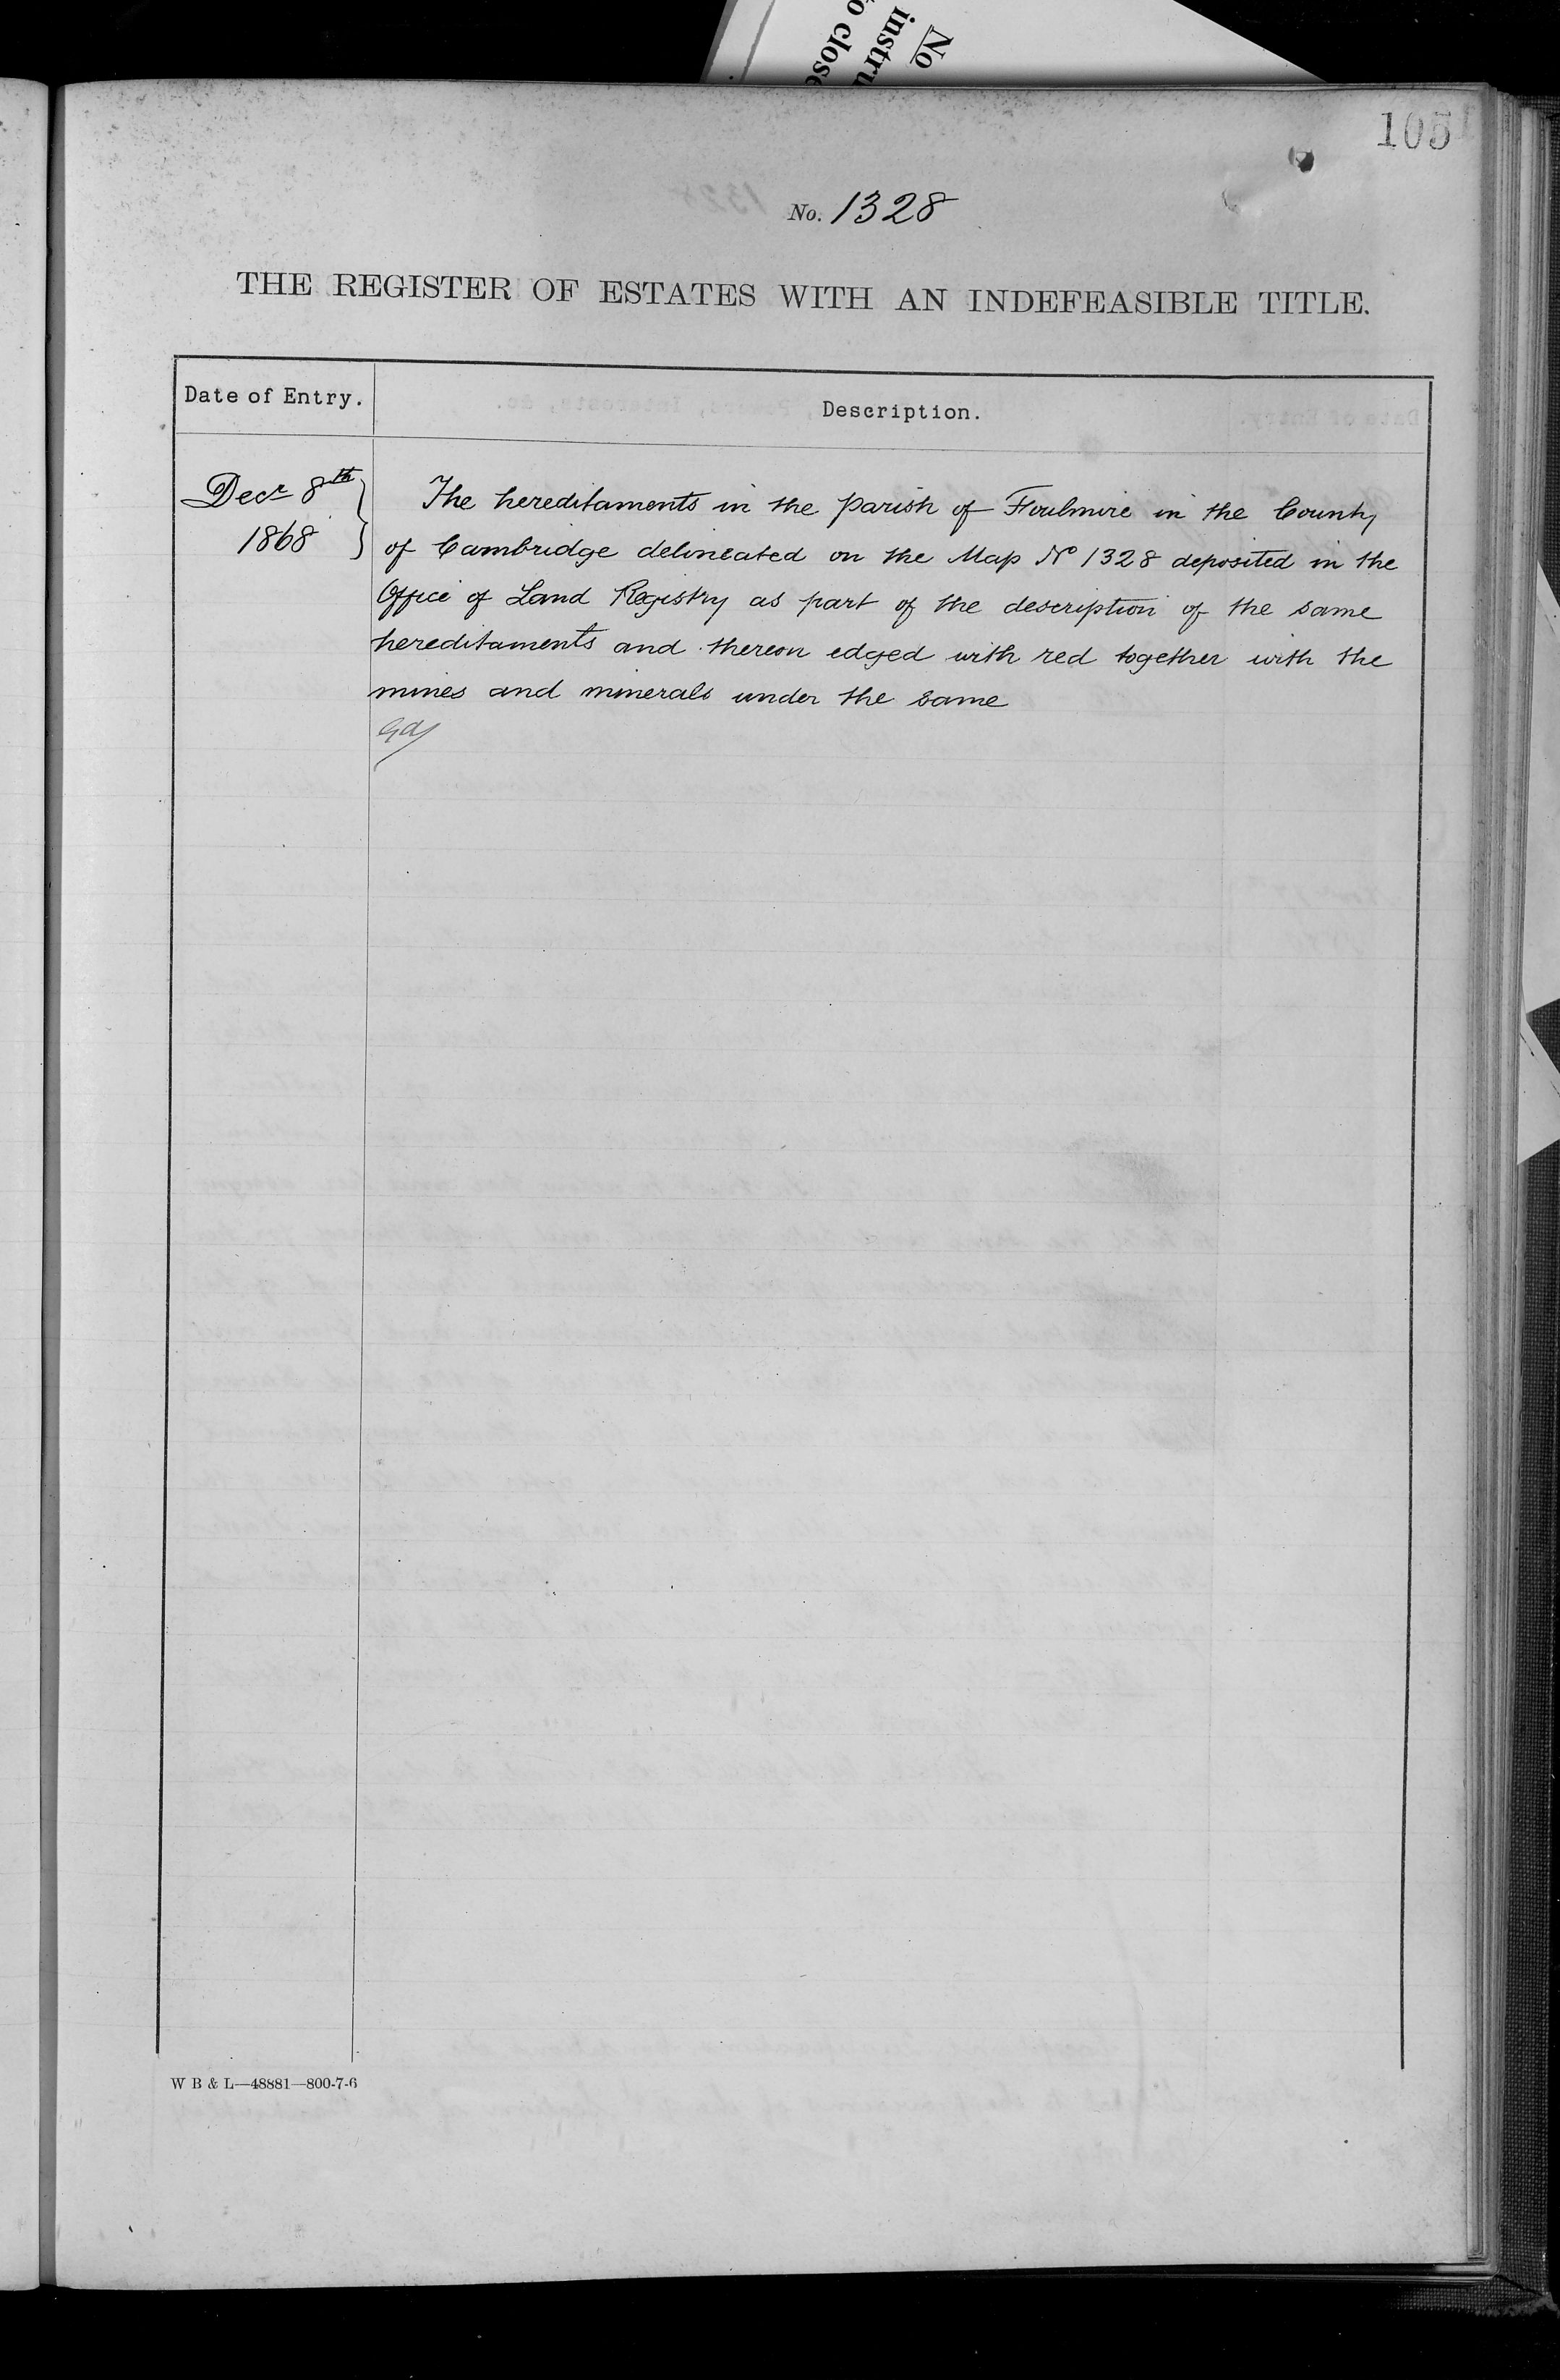 No
instru
to close
105
No. 1328
THE REGISTER OF ESTATES WITH AN INDEFEASIBLE TITLE.
Date of Entry.
Description.
Decr 8th
1868
The hereditaments in the parish of Foulmire in the County
of Cambridge delineated on the Map No 1328 deposited in the
Office of Land Registry as part of the description of the same
hereditaments and thereon edged with red together with the
mines and minerals under the same
W B & L—48881—800-7-6